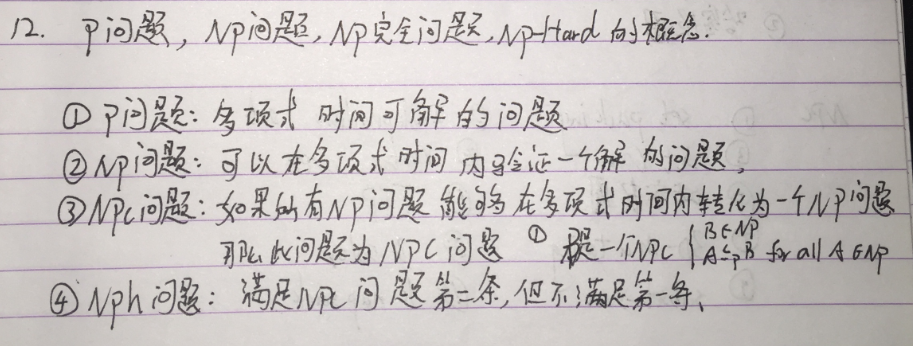 12. P问题, NP问题, NP完全问题, NP-Hard 的概念.
① P问题: 多项式 时间可解的问题
② NP问题: 可以在多项式时间 内验证一个解 的问题,
③ NPC问题: 如果所有NP问题能够在多项式时间内转化为一个NP问题
那么此问题为NPC问题 ① 是一个NPC { B∈NP
A≤pB for all A∈NP
④ NPh问题: 满足NPC问题第二条, 但不满足第一条、